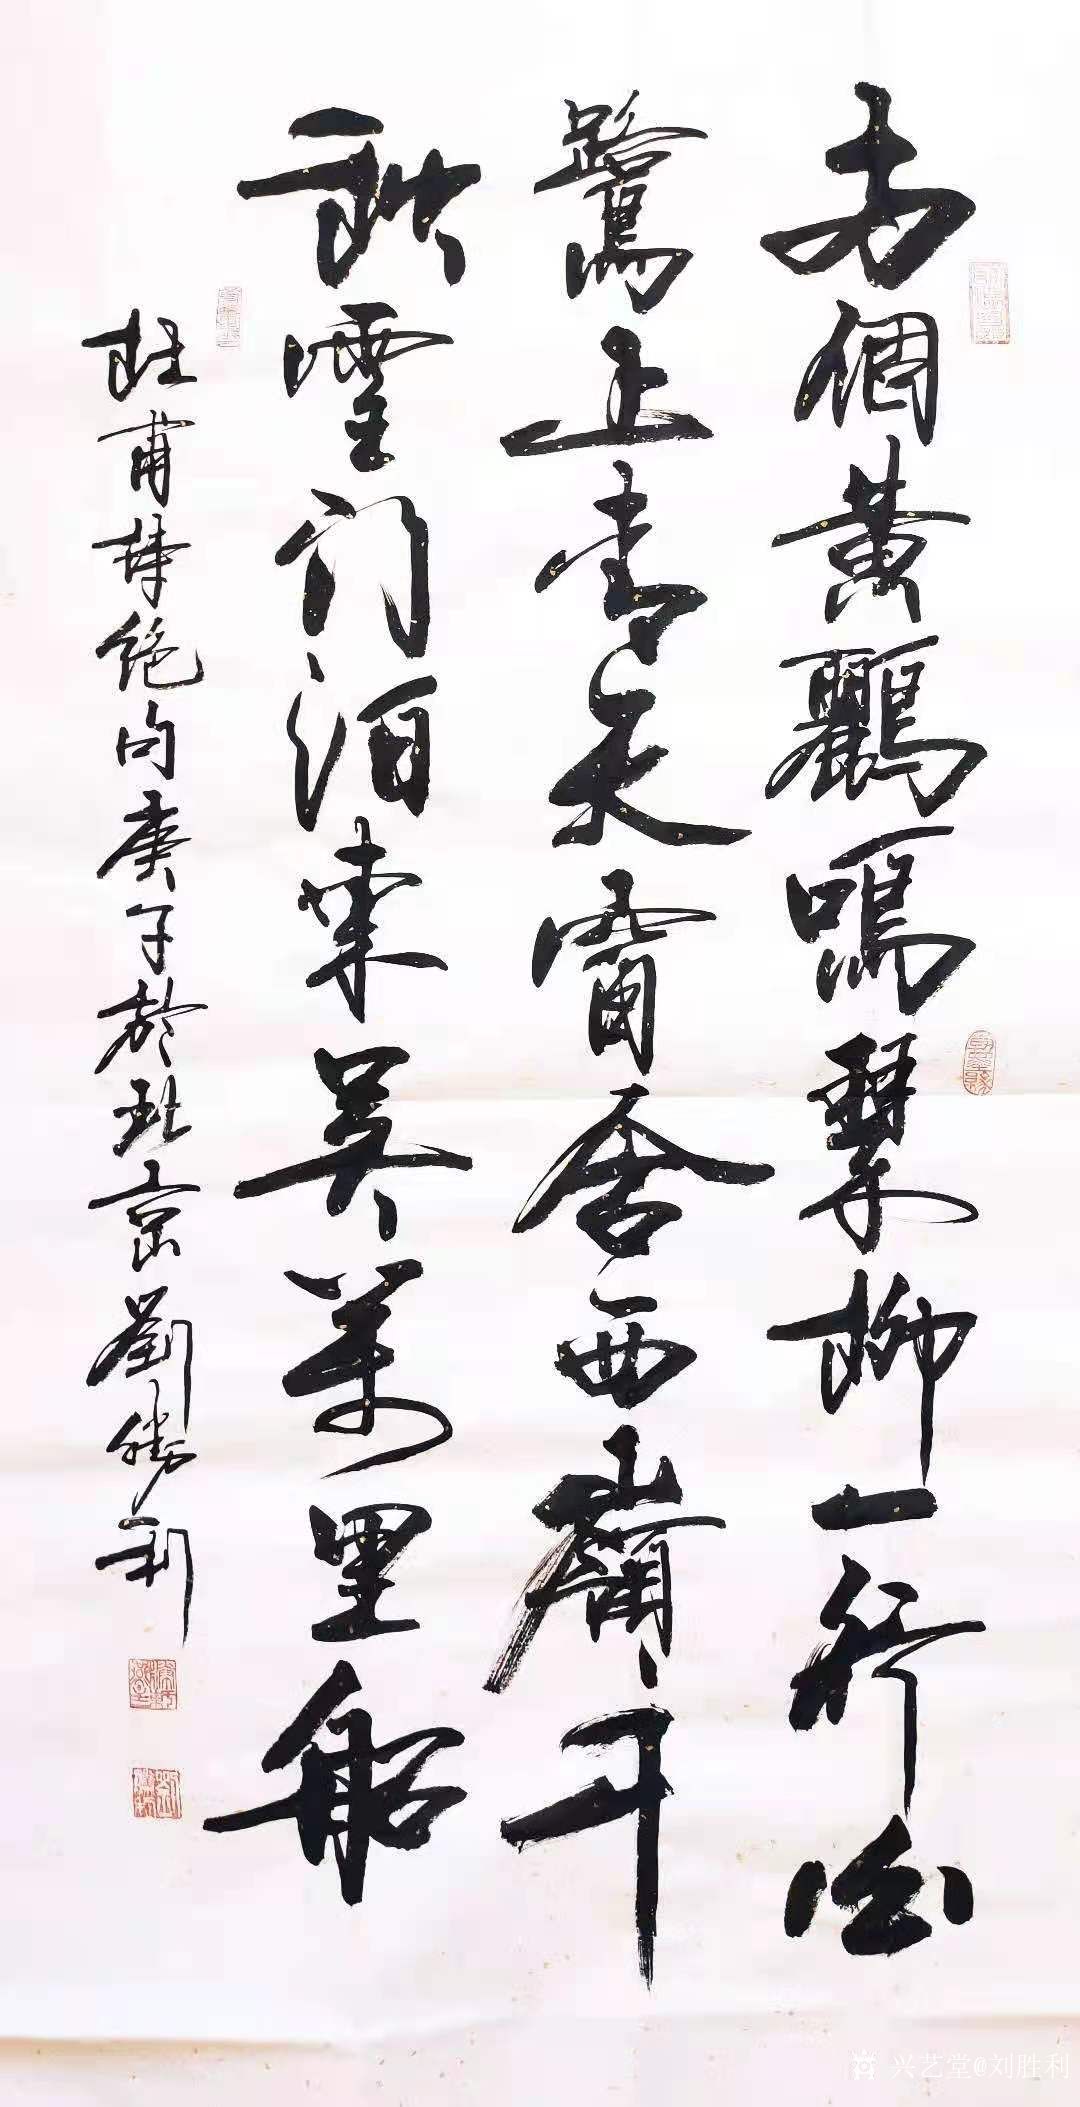 两個黄鸝鳴翠柳一行白
鷺上青天窗含西嶺千
秋雪门泊東吴萬里船
杜甫詩絕句庚子於北京劉勝利
兴艺堂@刘胜利